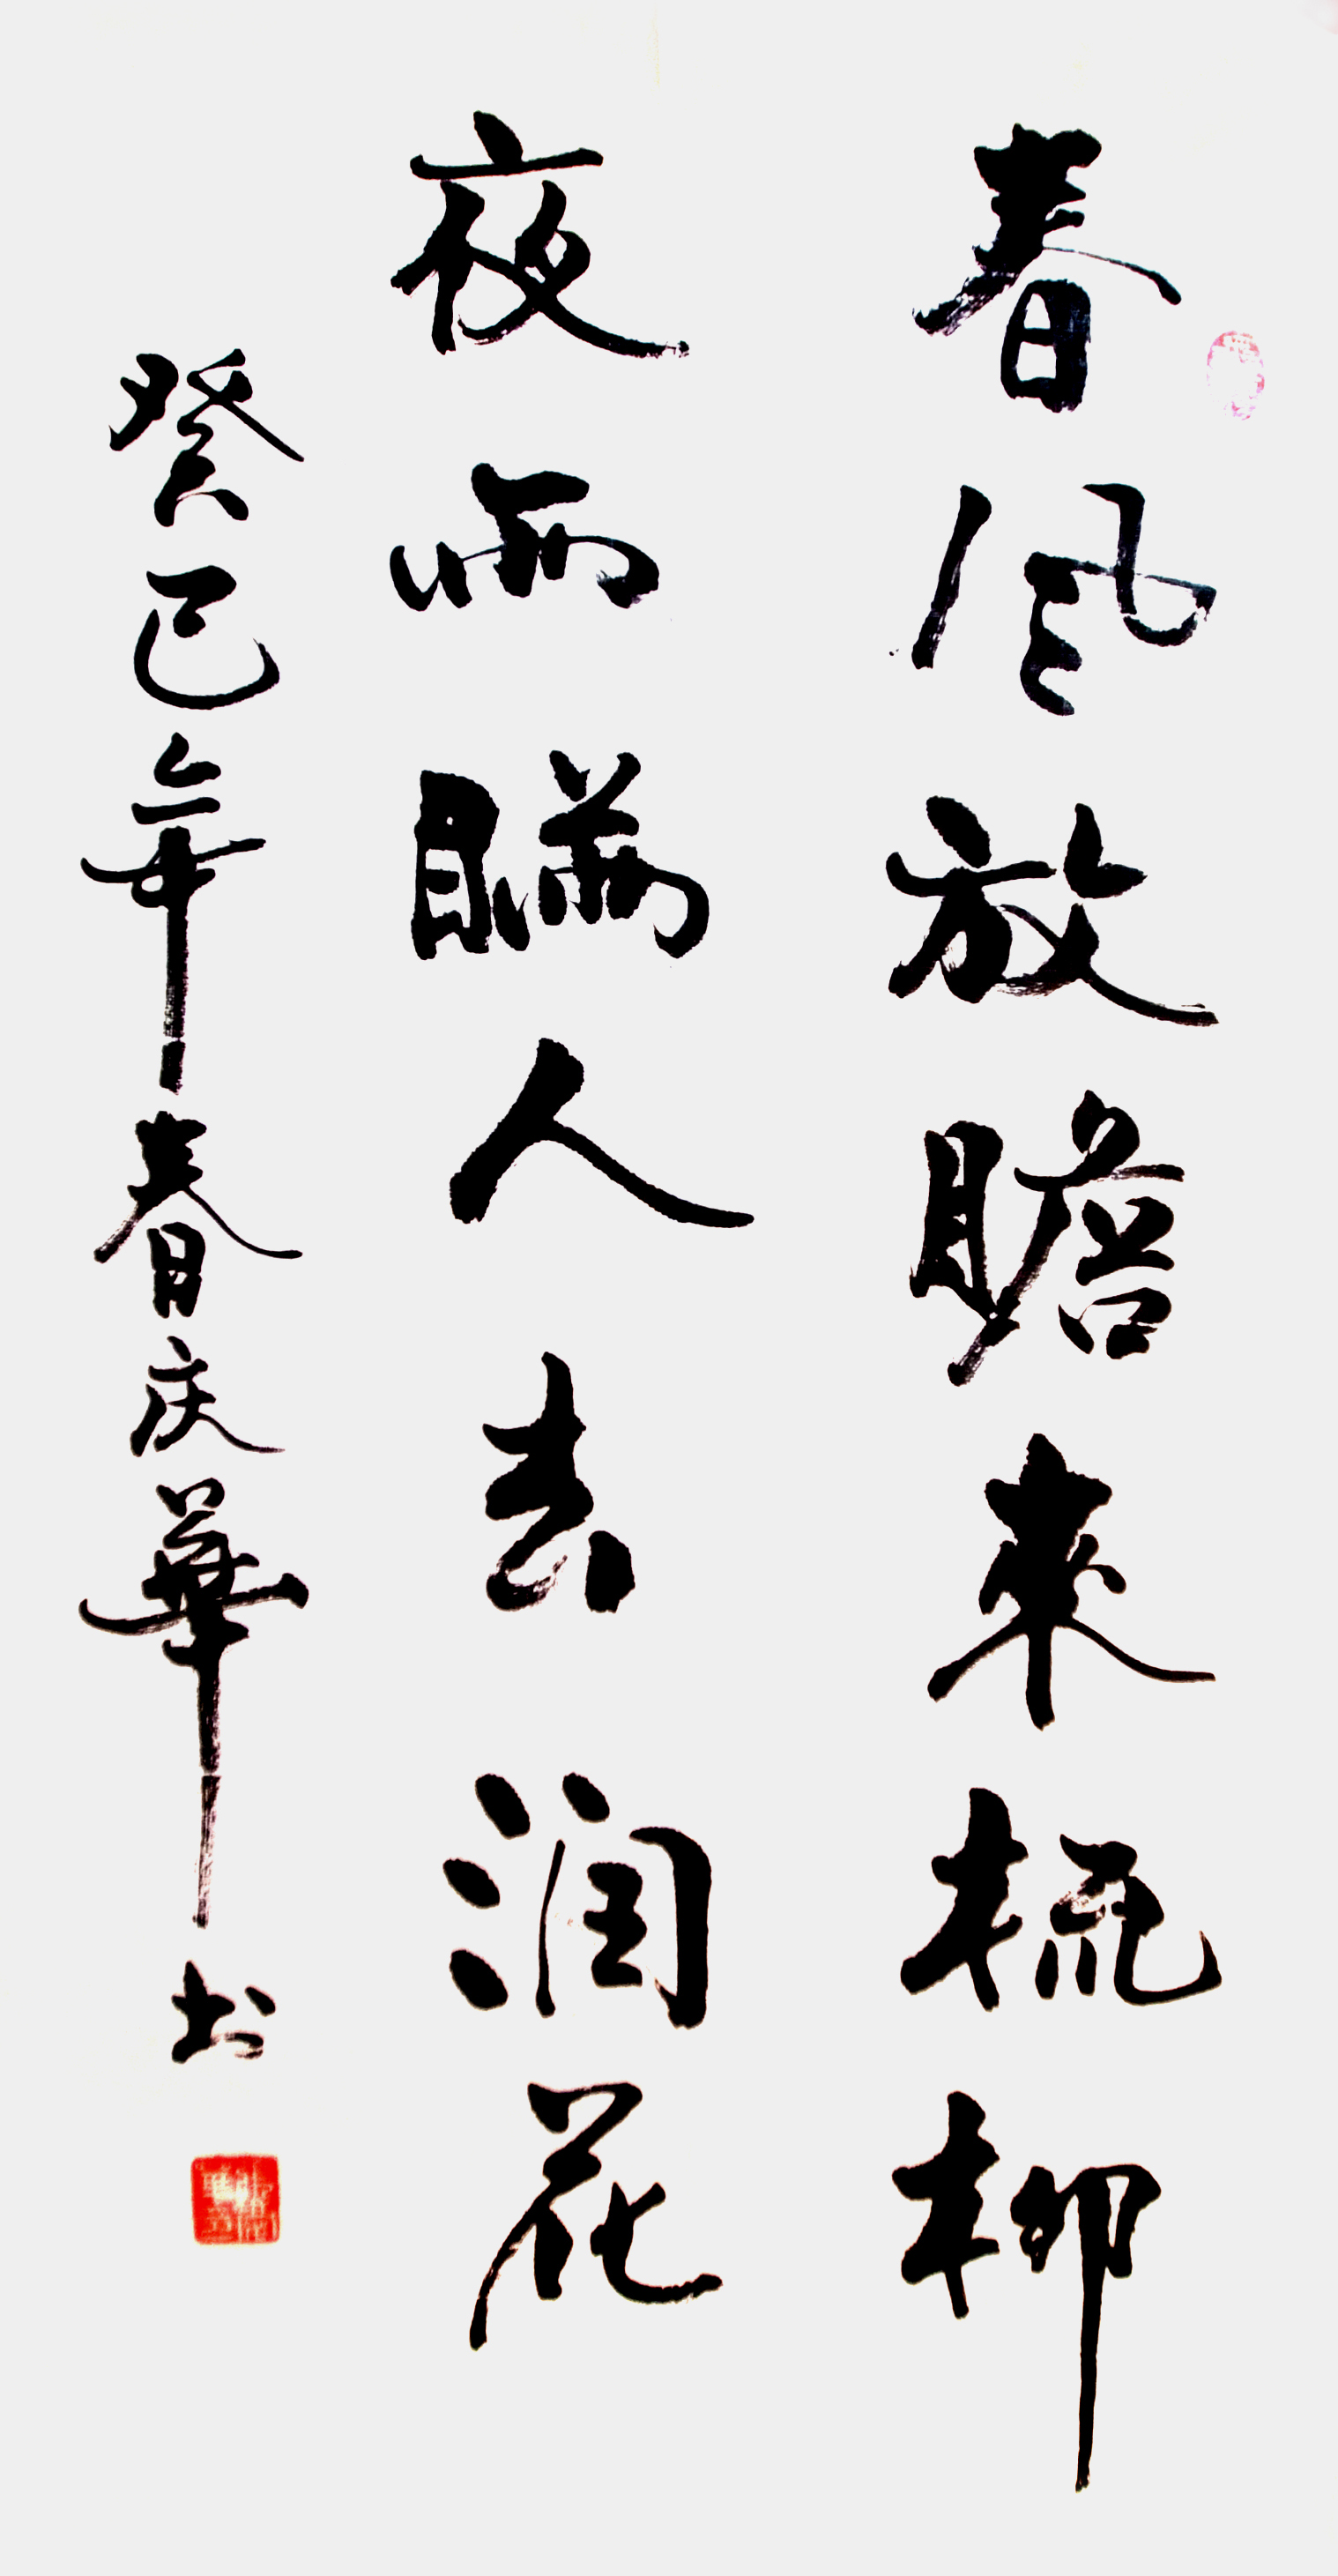 春风放膽來梳柳
夜雨瞞人去润花
癸巳年春庆華书